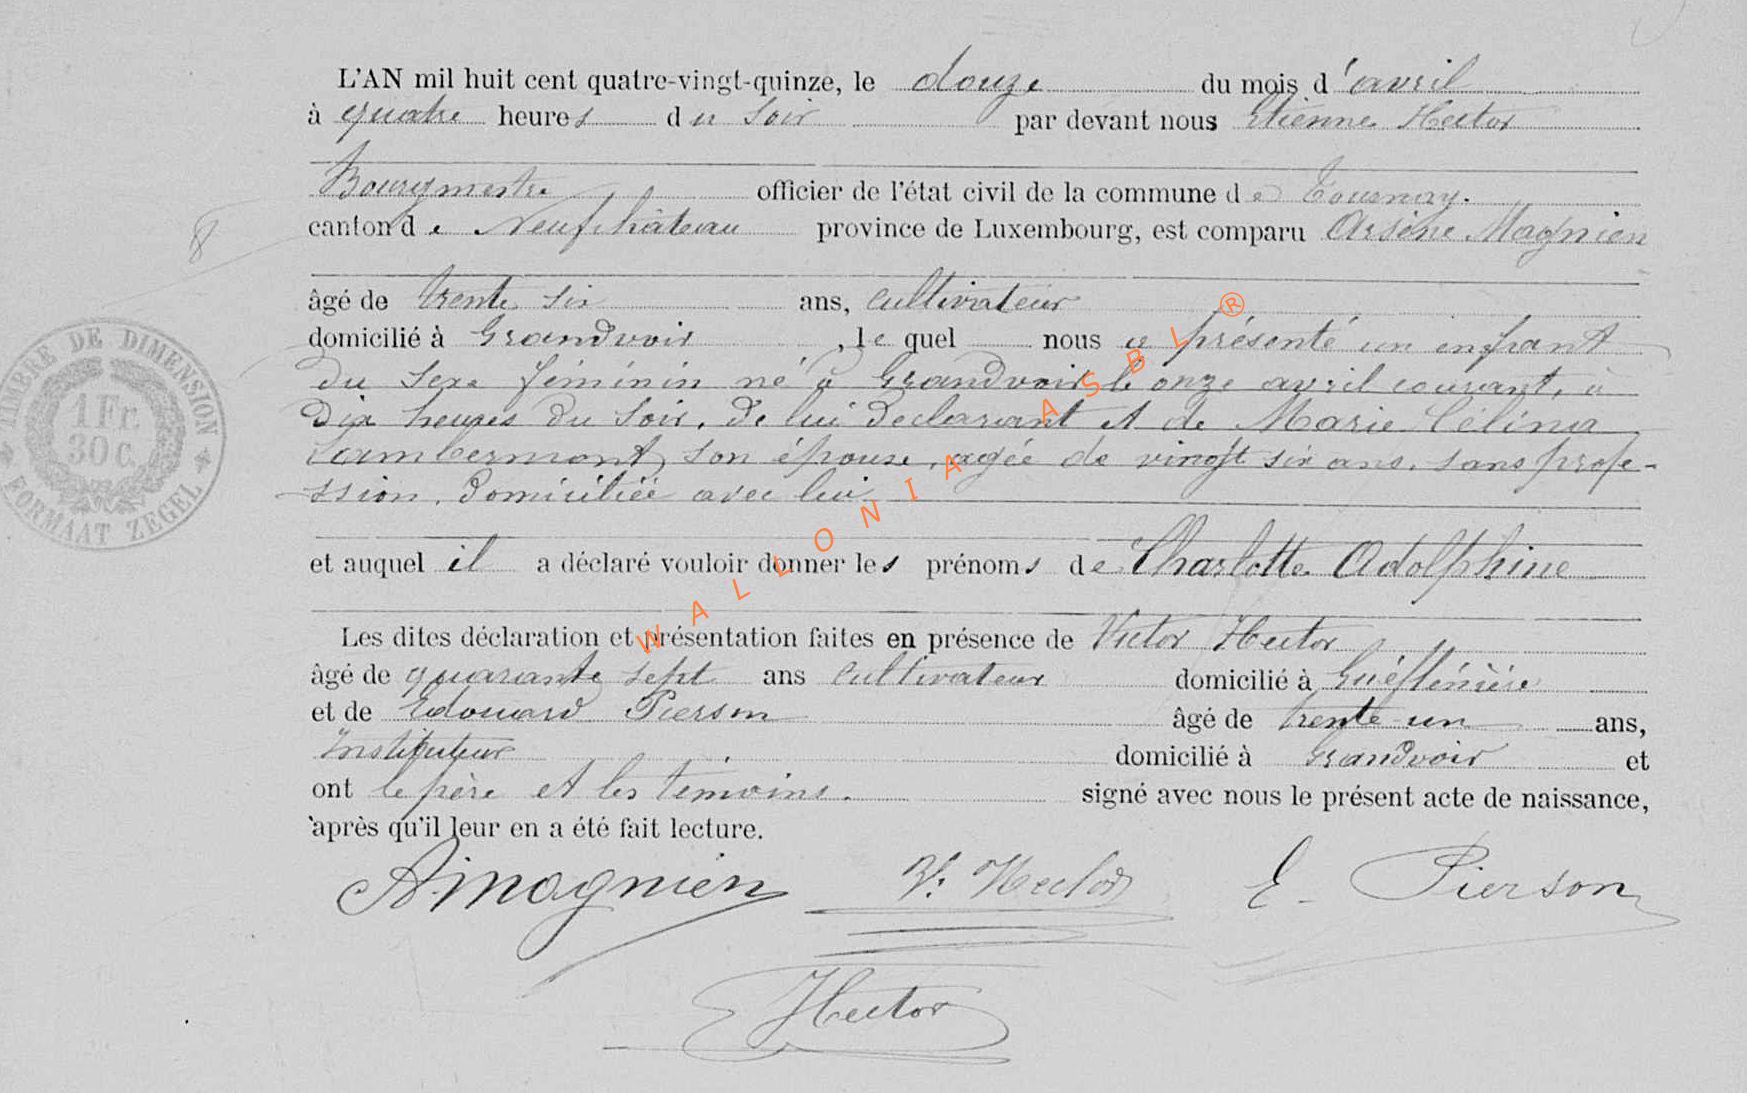 L'AN mil huit cent quatre-vingt-quinze, le douze du mois d'avril
à quatre heures du soir par devant nous Etienne Hector
Bourgmestre officier de l'état civil de la commune de Tournay.
8
canton de Neufchâteau province de Luxembourg, est comparu Arsène Magnien
âgé de trente six ans, cultivateur
domicilié à Grandvoir, lequel nous a présenté un enfant
du sexe féminin né à Grandvoir le onze avril courant, à
dix heures du soir, de lui déclarant et de Marie Célina
Lambermont, son épouse, agée de vingt six ans, sans profe-
ssion, domiciliée avec lui
et auquel il a déclaré vouloir donner les prénoms de Charlotte Adolphine
Les dites déclaration et présentation faites en présence de Victor Hector
âgé de quarante sept ans cultivateur domicilié à
et de Edouard Pierson âgé de trente un ans,
Instituteur domicilié à Grandvoir et
ont le père et les témoins. signé avec nous le présent acte de naissance,
après qu'il leur en a été fait lecture.
A Magnien V. Hector E. Pierson
E Hector
TIMBRE DE DIMENSION
1 Fr.
30 C.
FORMAAT ZEGEL
WALLONIA ASBL ®